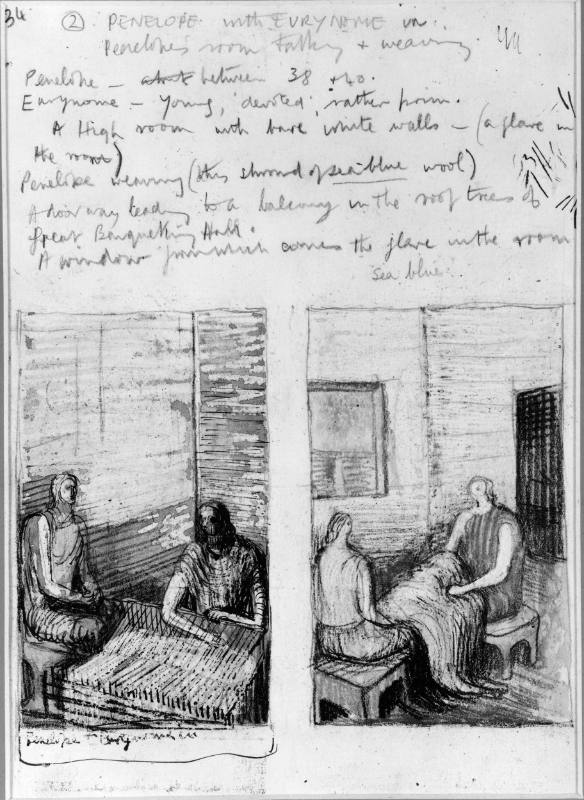 34
② PENELOPE with EURYNOME in
Penelope's room talking + weaving
Penelope – about between 38 + 40.
Eurynome – Young, 'devoted', rather prim.
A High room with bare white walls – (a flare in
the room)
Penelope weaving (this shroud of sea-blue wool)
A doorway leading to a balcony in the roof trees of
great Banquetting Hall.
A window from which comes the flare in the room
sea blue
Penelope +